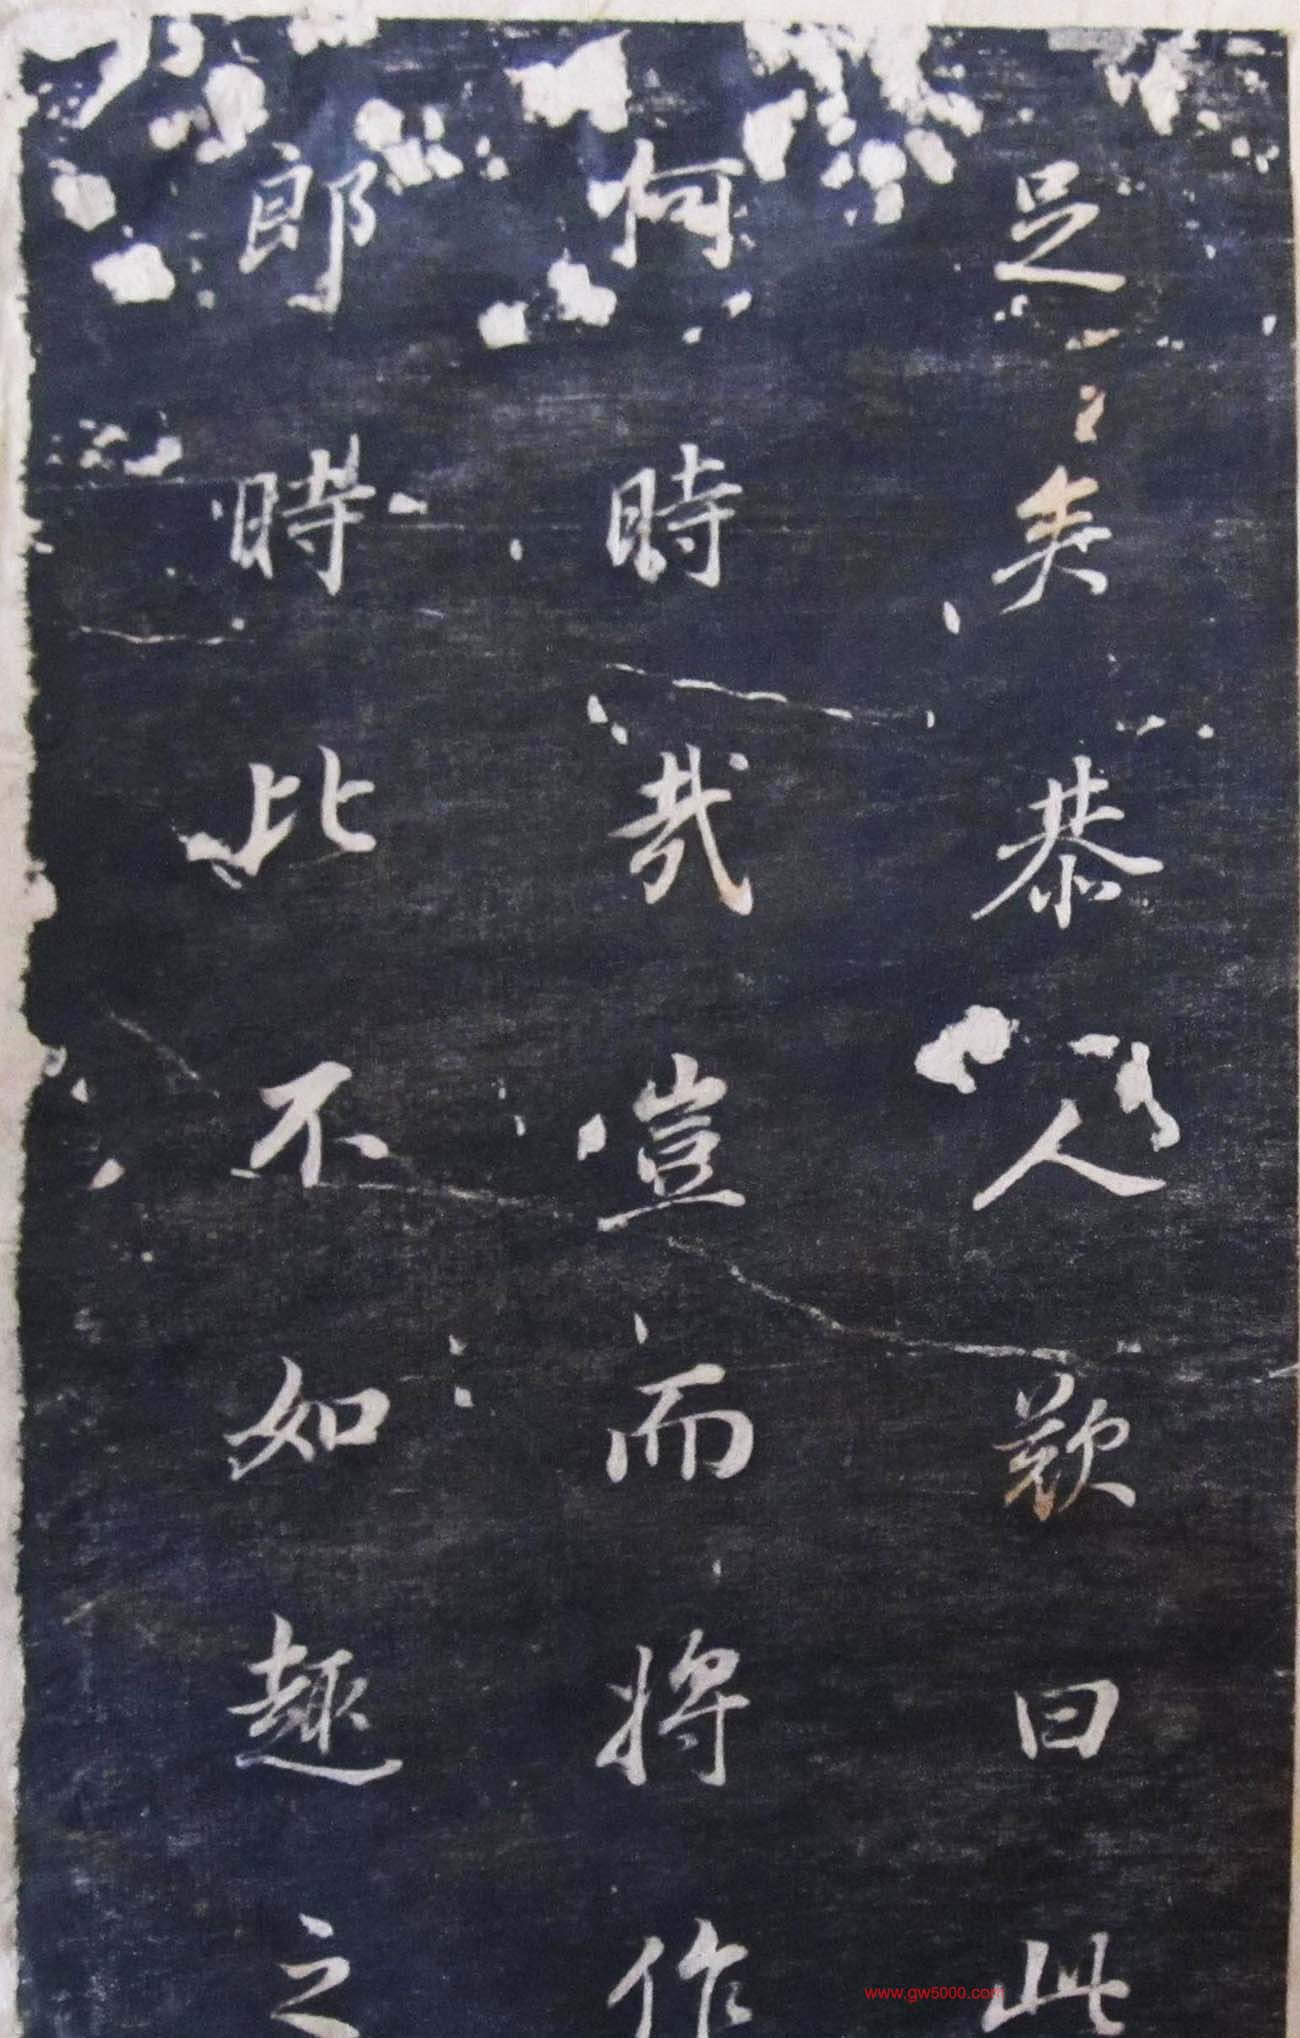 足矣恭人歎曰此
何時哉豈而將作
郎時比不如趣之
www.gw5000.com